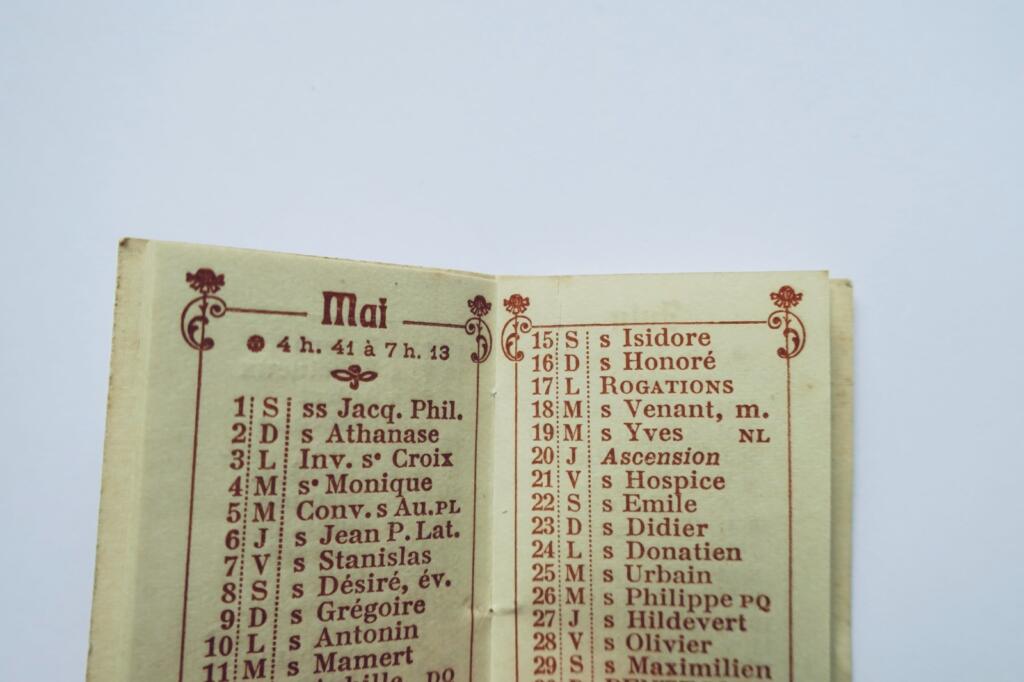 Mai
4 h. 41 à 7 h. 13
1 S ss Jacq. Phil.
2 D s Athanase
3 L Inv. sᵉ Croix
4 M sᵉ Monique
5 M Conv. s Au. PL
6 J s Jean P. Lat.
7 V s Stanislas
8 S s Désiré, év.
9 D s Grégoire
10 L s Antonin
11 M s Mamert
PQ
15 S s Isidore
16 D s Honoré
17 L ROGATIONS
18 M s Venant, m.
19 M s Yves NL
20 J Ascension
21 V s Hospice
22 S s Emile
23 D s Didier
24 L s Donatien
25 M s Urbain
26 M s Philippe PQ
27 J s Hildevert
28 V s Olivier
29 S s Maximilien